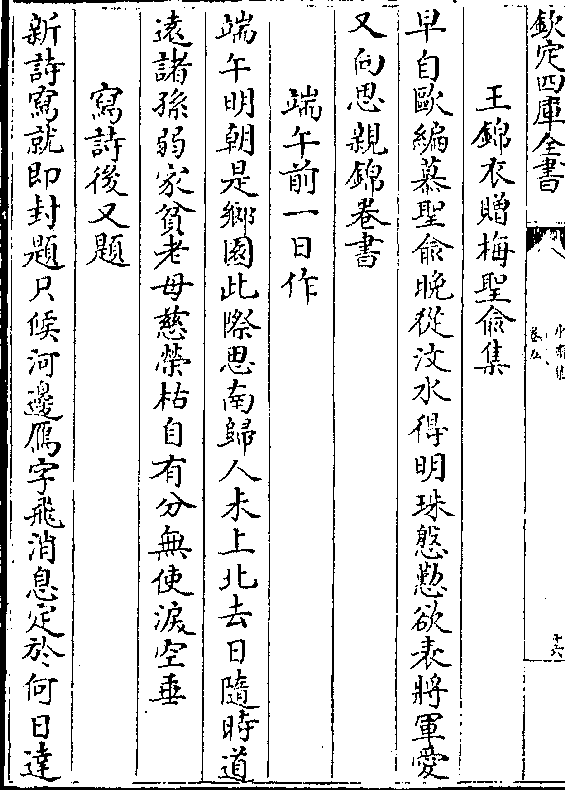 欽定四庫全書
王錦衣贈梅聖俞集
早自歐編慕聖俞晚從汶水得明珠慇懃欲表將軍愛
又向思親錦卷書
端午前一日作
端午明朝是鄉園此際思南歸人未上北去日隨時道
遠諸孫弱家貧老母慈榮枯自有分無使淚空垂
寫詩後又題
新詩寫就即封題只候河邊鴈字飛消息定於何日達